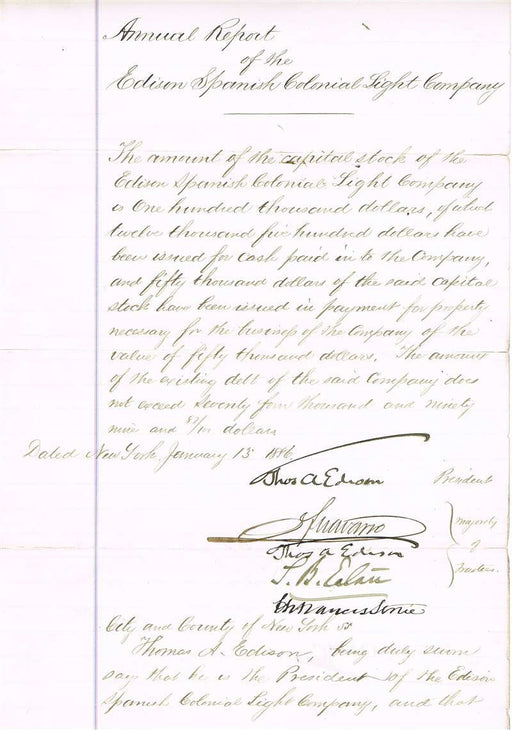 Annual Report
of the
Edison Spanish Colonial Light Company
The amount of the capital stock of the
Edison Spanish Colonial Light Company
is One hundred thousand dollars, of which
twelve thousand five hundred dollars have
been issued for cash paid in to the Company,
and fifty thousand dollars of the said capital
stock have been issued in payment for property
necessary for the business of the Company of the
value of fifty thousand dollars. The amount
of the existing debt of the said Company does
not exceed Seventy four thousand and ninety
nine and dollars
Dated New York January 13 1886
Thos A Edison President
J Navarro
Thos A Edison
S. B. Eaton
majority
of
trustees.
City and County of New York ss
Thomas A. Edison, being duly sworn
say that he is the President of the Edison
Spanish Colonial Light Company, and that